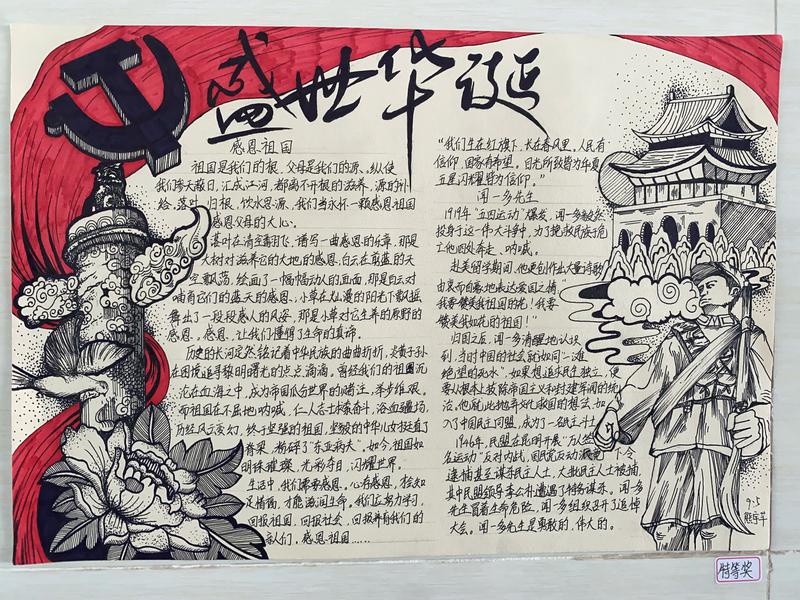 盛世华诞
感恩祖国
祖国是我们的根,父母是我们的源。纵使
我们参天蔽日,汇成江河,都离不开根的滋养,源的补
给。落叶归根,饮水思源,我们当永怀一颗感恩祖国
感恩父母的大心。
落叶在清空翱飞,谱写一曲感恩的乐章,那是
大树对滋养它的大地的感恩。白云在蔚蓝的天
空飘荡,绘画了一幅幅动人的画面,那是白云对
哺育它们的蓝天的感恩。小草在灿漫的阳光下散摇
舞出了一段段感人的风姿,那是小草对它生养的原野的
感恩。感恩,让我们懂得了生命的真谛。
历史的长河定然铭记着中华民族的曲曲折折,炎黄子孙
在困境追寻黎明曙光的点点滴滴,曾经我们的祖国沉
沦在血海之中,成为帝国瓜分世界的赌注,举步维艰。
而祖国在不屈地呐喊,仁人志士求索奋斗,浴血疆场,
历经风云变幻,终于坚强的祖国,坚毅的中华儿女挺直了
脊梁,粉碎了“东亚病夫”。如今,祖国如
明珠璀璨,光彩夺目,闪耀世界。
生活中,我们需要感恩。心存感恩,知
足惜福,才能滋润生命。我们应努力学习,
回报祖国,回报社会,回报养育我们的
亲人们。感恩祖国……
“我们生在红旗下,长在春风里。人民有
信仰,国家有希望。目光所致皆为华夏,
五星闪耀皆为信仰。”
闻一多先生
1919年“五四运动”爆发,闻一多毅然
投身于这一伟大斗争中,为了挽救民族于危
亡他四处奔走、呐喊。
赴美留学期间,他更创作出大量诗歌
由衷而自豪地表达爱国之情“
我要赞美我祖国的花!我要
赞美我如花的祖国!”
归国之后,闻一多清醒地认识
到,当时中国的社会就如同一滩
绝望的死水”,如果想追求民主独立,便
要从根本上拔除帝国主义和封建军阀的统
治。他就此抛弃文化救国的想法,加
入了中国民主同盟,成为了一名民主斗士
1946年,民盟在昆明开展“万人签
名运动”反对内战,国民党反动派下令
逮捕甚至谋杀民主人士,大批民主人士被捕,
其中民盟领导李公朴遭遇了特务谋杀。闻一多
先生冒着生命危险,闻一多组织召开了追悼
大会。闻一多先生是勇敢的,伟大的。
9.5
特等奖